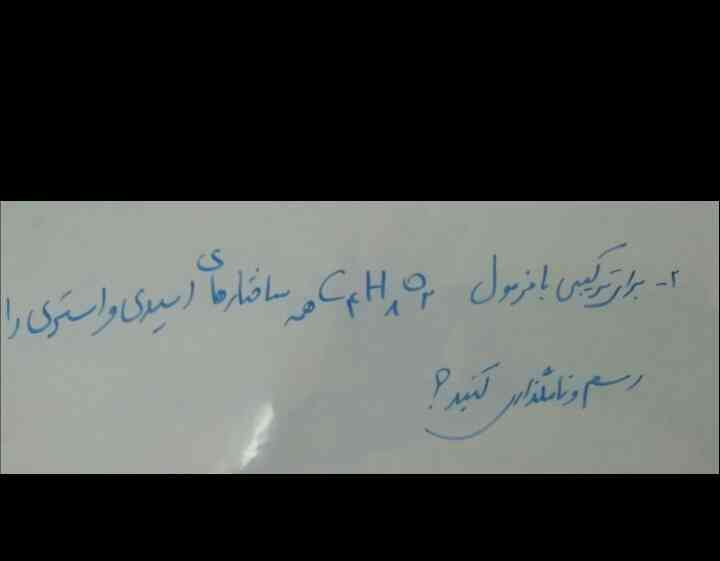 ۲- برای ترکیبی با فرمول C۴H۸O۲ همه ساختارهای اسیدی و استری را
رسم و نامگذاری کنید؟